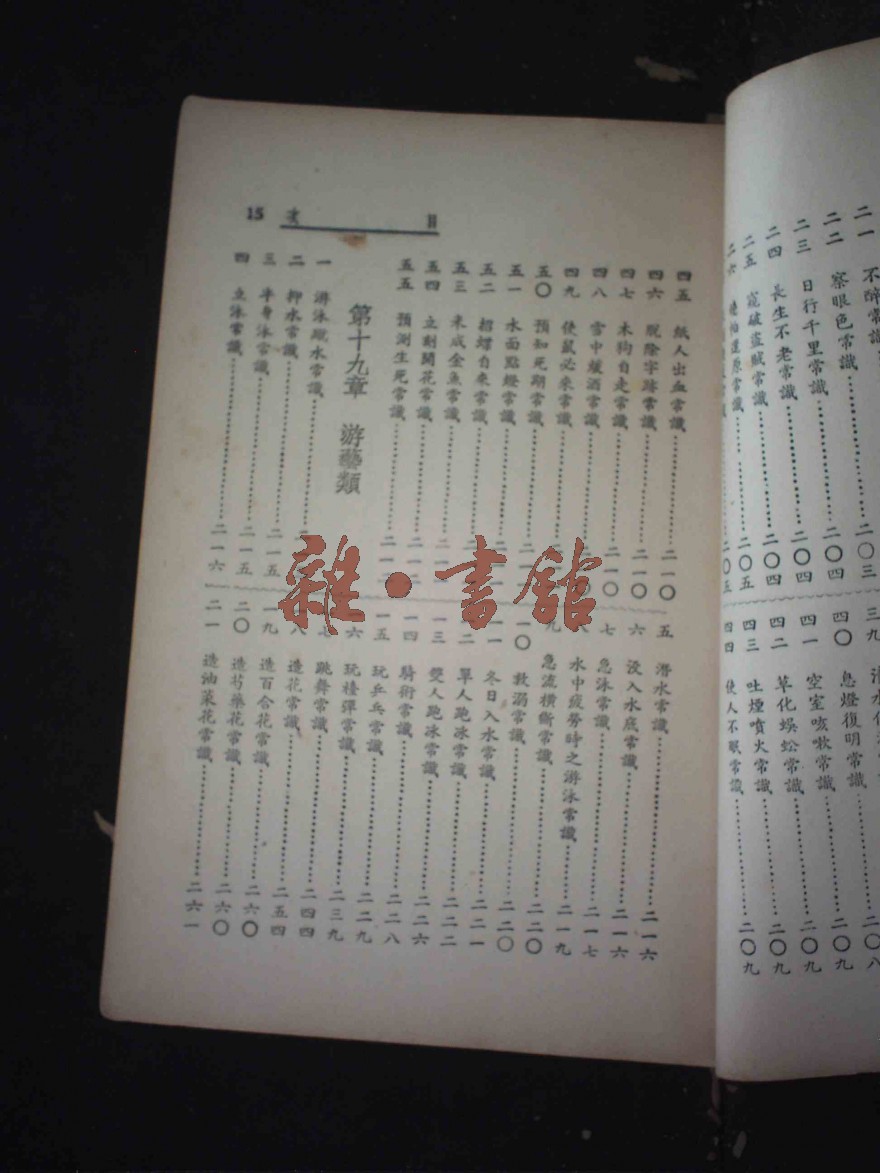 目 次 15
二一 不醉常識 二〇三
二二 察眼色常識 二〇四
二三 日行千里常識 二〇四
二四 長生不老常識 二〇四
二五 窺破盜賊常識 二〇五
二六 還原常識 二〇五
三九 潛水化
四〇 息燈復明常識 二〇八
四一 空室咳嗽常識 二〇九
四二 草化蜈蚣常識 二〇九
四三 吐煙噴火常識 二〇九
四四 使人不眠常識 二〇九
四五 紙人出血常識 二一〇
四六 脫除字跡常識 二一〇
四七 木狗自走常識 二一〇
四八 雪中煖酒常識 二一〇
四九 使鼠必來常識
五〇 預知死期常識
五一 水面點燈常識
五二 招蝶自來常識
五三 米成金魚常識
五四 立刻開花常識
五五 預測生死常識
第十九章 游藝類
一 游泳蹤水常識
二 押水常識 二一五
三 半身泳常識 二一五
四 立泳常識 二一六
五 潛水常識 二一六
六 沒入水底常識 二一六
七 急泳常識 二一七
八 水中疲勞時之游泳常識 二一九
九 急流橫斷常識 二二〇
一〇 救溺常識 二二〇
一一 冬日入水常識 二二一
一二 單人跑冰常識 二二二
一三 雙人跑冰常識 二二六
一四 騎術常識 二二八
一五 玩乒乓常識 二二九
一六 玩檯彈常識 二三九
一七 跳舞常識 二四四
一八 造花常識 二五四
一九 造百合花常識 二六〇
二〇 造芍藥花常識 二六〇
二一 造油菜花常識 二六一
雜·書館